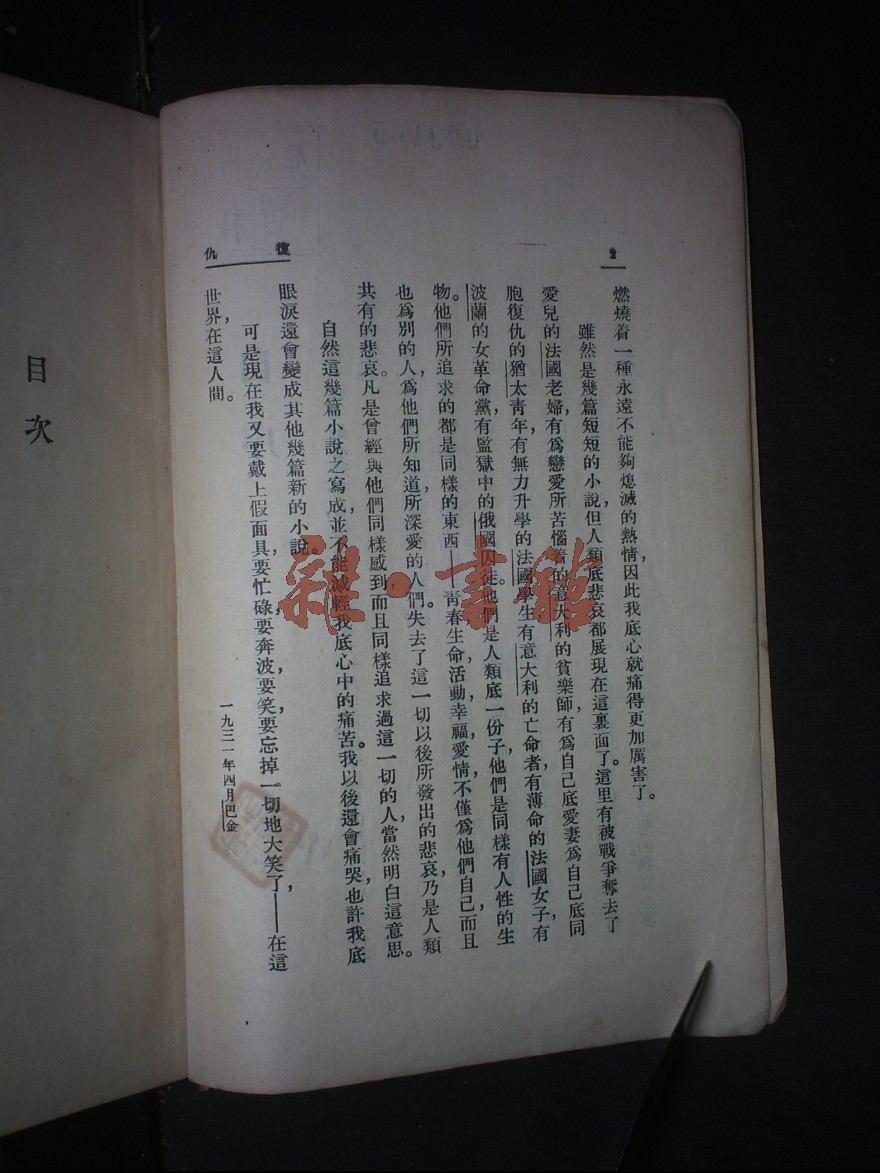 2
復仇
燃燒着一種永遠不能夠熄滅的熱情,因此我底心就痛得更加厲害了。
雖然是幾篇短短的小說,但人類底悲哀都展現在這裏面了。這里有被戰爭奪去了
愛兒的法國老婦,有爲戀愛所苦惱着的意大利的貧樂師,有爲自己底愛妻爲自己底同
胞復仇的猶太靑年,有無力升學的法國學生,有意大利的亡命者,有薄命的法國女子,有
波蘭的女革命黨,有監獄中的俄國囚徒。他們是人類底一份子,他們是同樣有人性的生
物。他們所追求的都是同樣的東西——靑春,生命,活動,幸福,愛情,不僅爲他們自己,而且
也爲別的人,爲他們所知道所深愛的人們。失去了這一切以後所發出的悲哀,乃是人類
共有的悲哀。凡是曾經與他們同樣感到,而且同樣追求過這一切的人,當然明白這意思。
自然這幾篇小說之寫成並不能減輕我底心中的痛苦。我以後還會痛哭,也許我底
眼淚還會變成其他幾篇新的小說。
可是現在我又要戴上假面具,要忙碌,要奔波,要笑,要忘掉一切地大笑了,——在這
世界,在這人間。
一九三一年四月巴金
目次
雜·書館